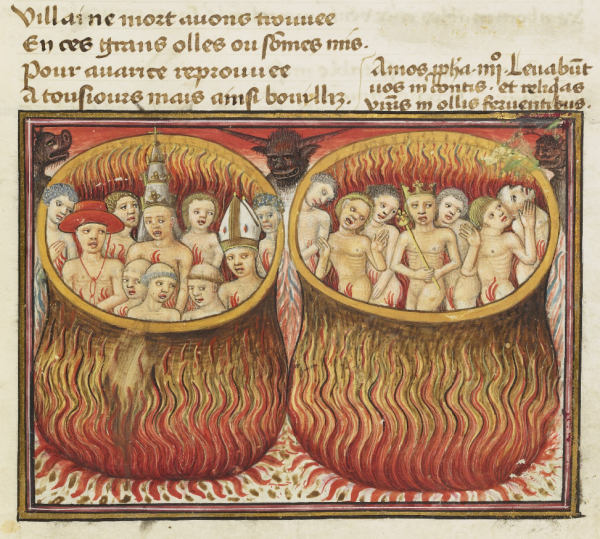 Villaine mort auons trouuee
En ces grans olles ou sōmes mis.
Pour auarice reprouuee
A tousiours mais ainsi bouilliz.
Amos ppħa. iiijº. Leuabūt
uos in contis. et reliqas
vr̄as in ollis feruentibus.